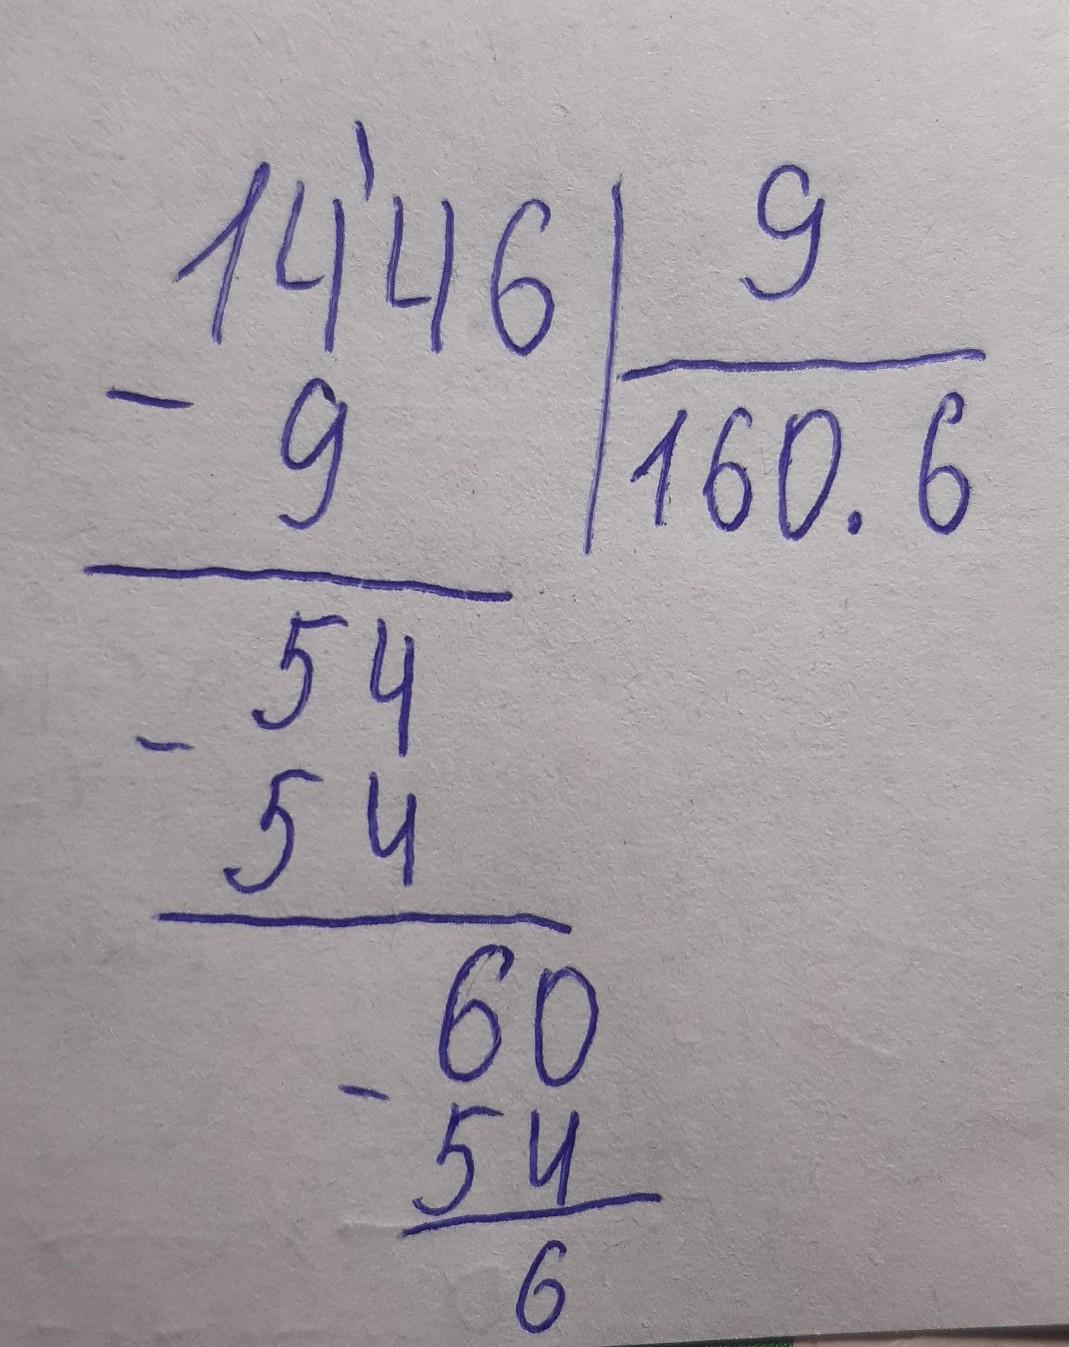 14'46 9
- 9 160.6
54
- 54
60
- 54
6